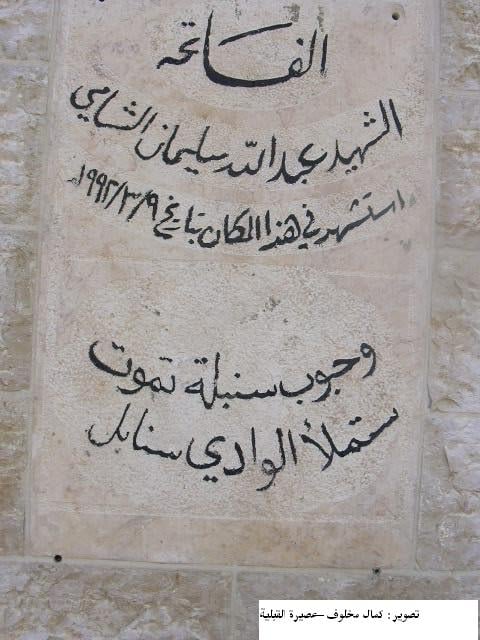 الفاتحه
الشهيد عبدالله سليمان الشامي
استشهد في هذا المكان بتاريخ ١٩٩٢/٣/٩م
وحبوب سنبلة تموت
ستملأ الوادي سنابل
تصوير: كمال مخلوف –عصيرة القبلية